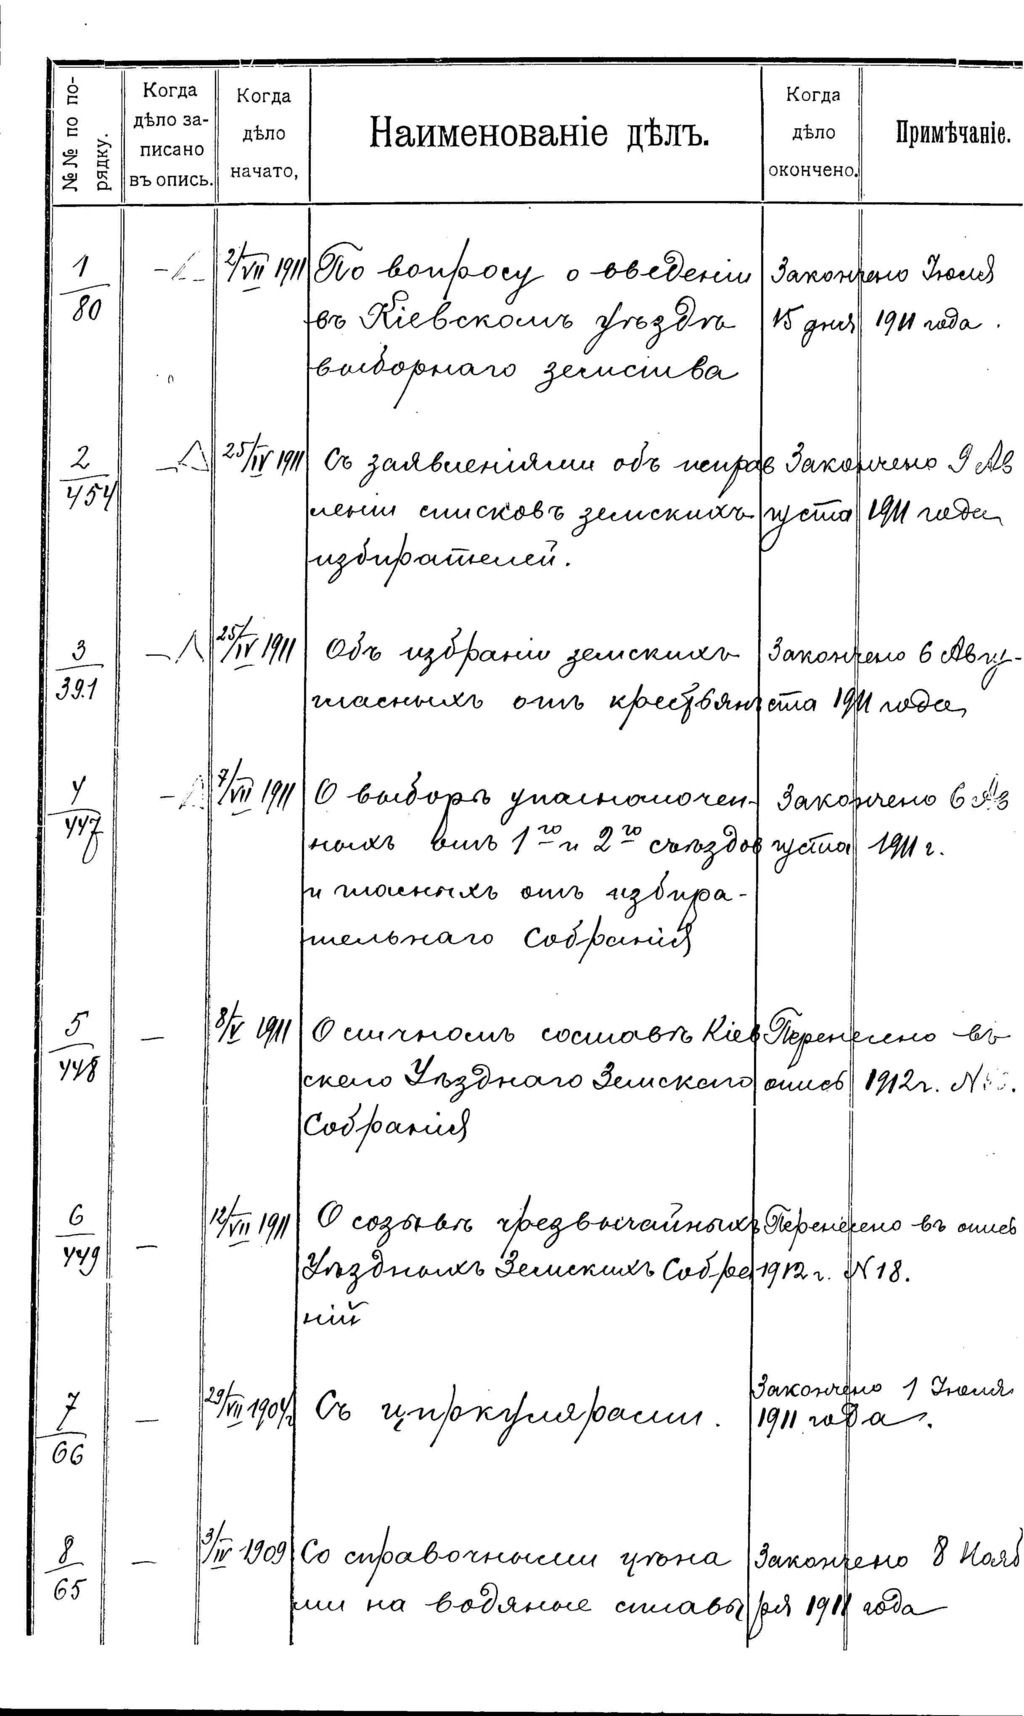 №№ по по-
рядку.
Когда
дѣло за-
писано
въ опись.
Когда
дѣло
начато,
Наименованіе дѣлъ.
Когда
дѣло
окончено.
Примѣчаніе.
1/80 2/VII 1911 По вопросу о введеніи Закончено Іюля
въ Кіевскомъ уѣздѣ 15 дня 1911 года.
выборнаго земства
2/454 25/IV 1911 Съ заявленіями объ исправ Закончено 9 Ав
леніи списковъ земскихъ густа 1911 года
избирателей.
3/391 25/IV 1911 Объ избраніи земскихъ Закончено 6 Авгу-
гласныхъ отъ крестьянъ ста 1911 года
4/447 7/VII 1911 О выборѣ уполномочен- Закончено 6 Ав
ныхъ отъ 1го и 2го съѣздов густа 1911 г.
и гласныхъ отъ избира-
тельнаго Собранія
5/448 — 8/V 1911 О личномъ составѣ Кіев Перенесено въ
скаго Уѣзднаго Земскаго опись 1912 г. N
Собранія
6/449 — 12/VII 1911 О созывѣ чрезвычайныхъ Перенесено въ опись
Уѣздныхъ Земскихъ Собра 1912 г. N 18.
ній
7/66 — 29/VII 1904 г. Съ циркулярами. Закончено 1 Іюля
1911 года.
8/65 — 3/IV 1909 Со справочными цѣна Закончено 8 Нояб
ми на водяные сплавы ря 1911 года